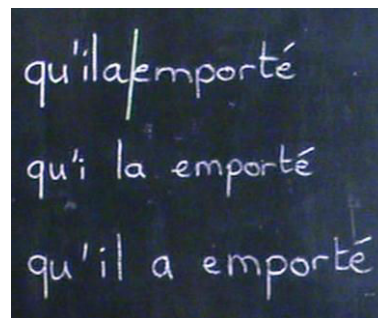 qu'ila/emporté
qu'i la emporté
qu'il a emporté